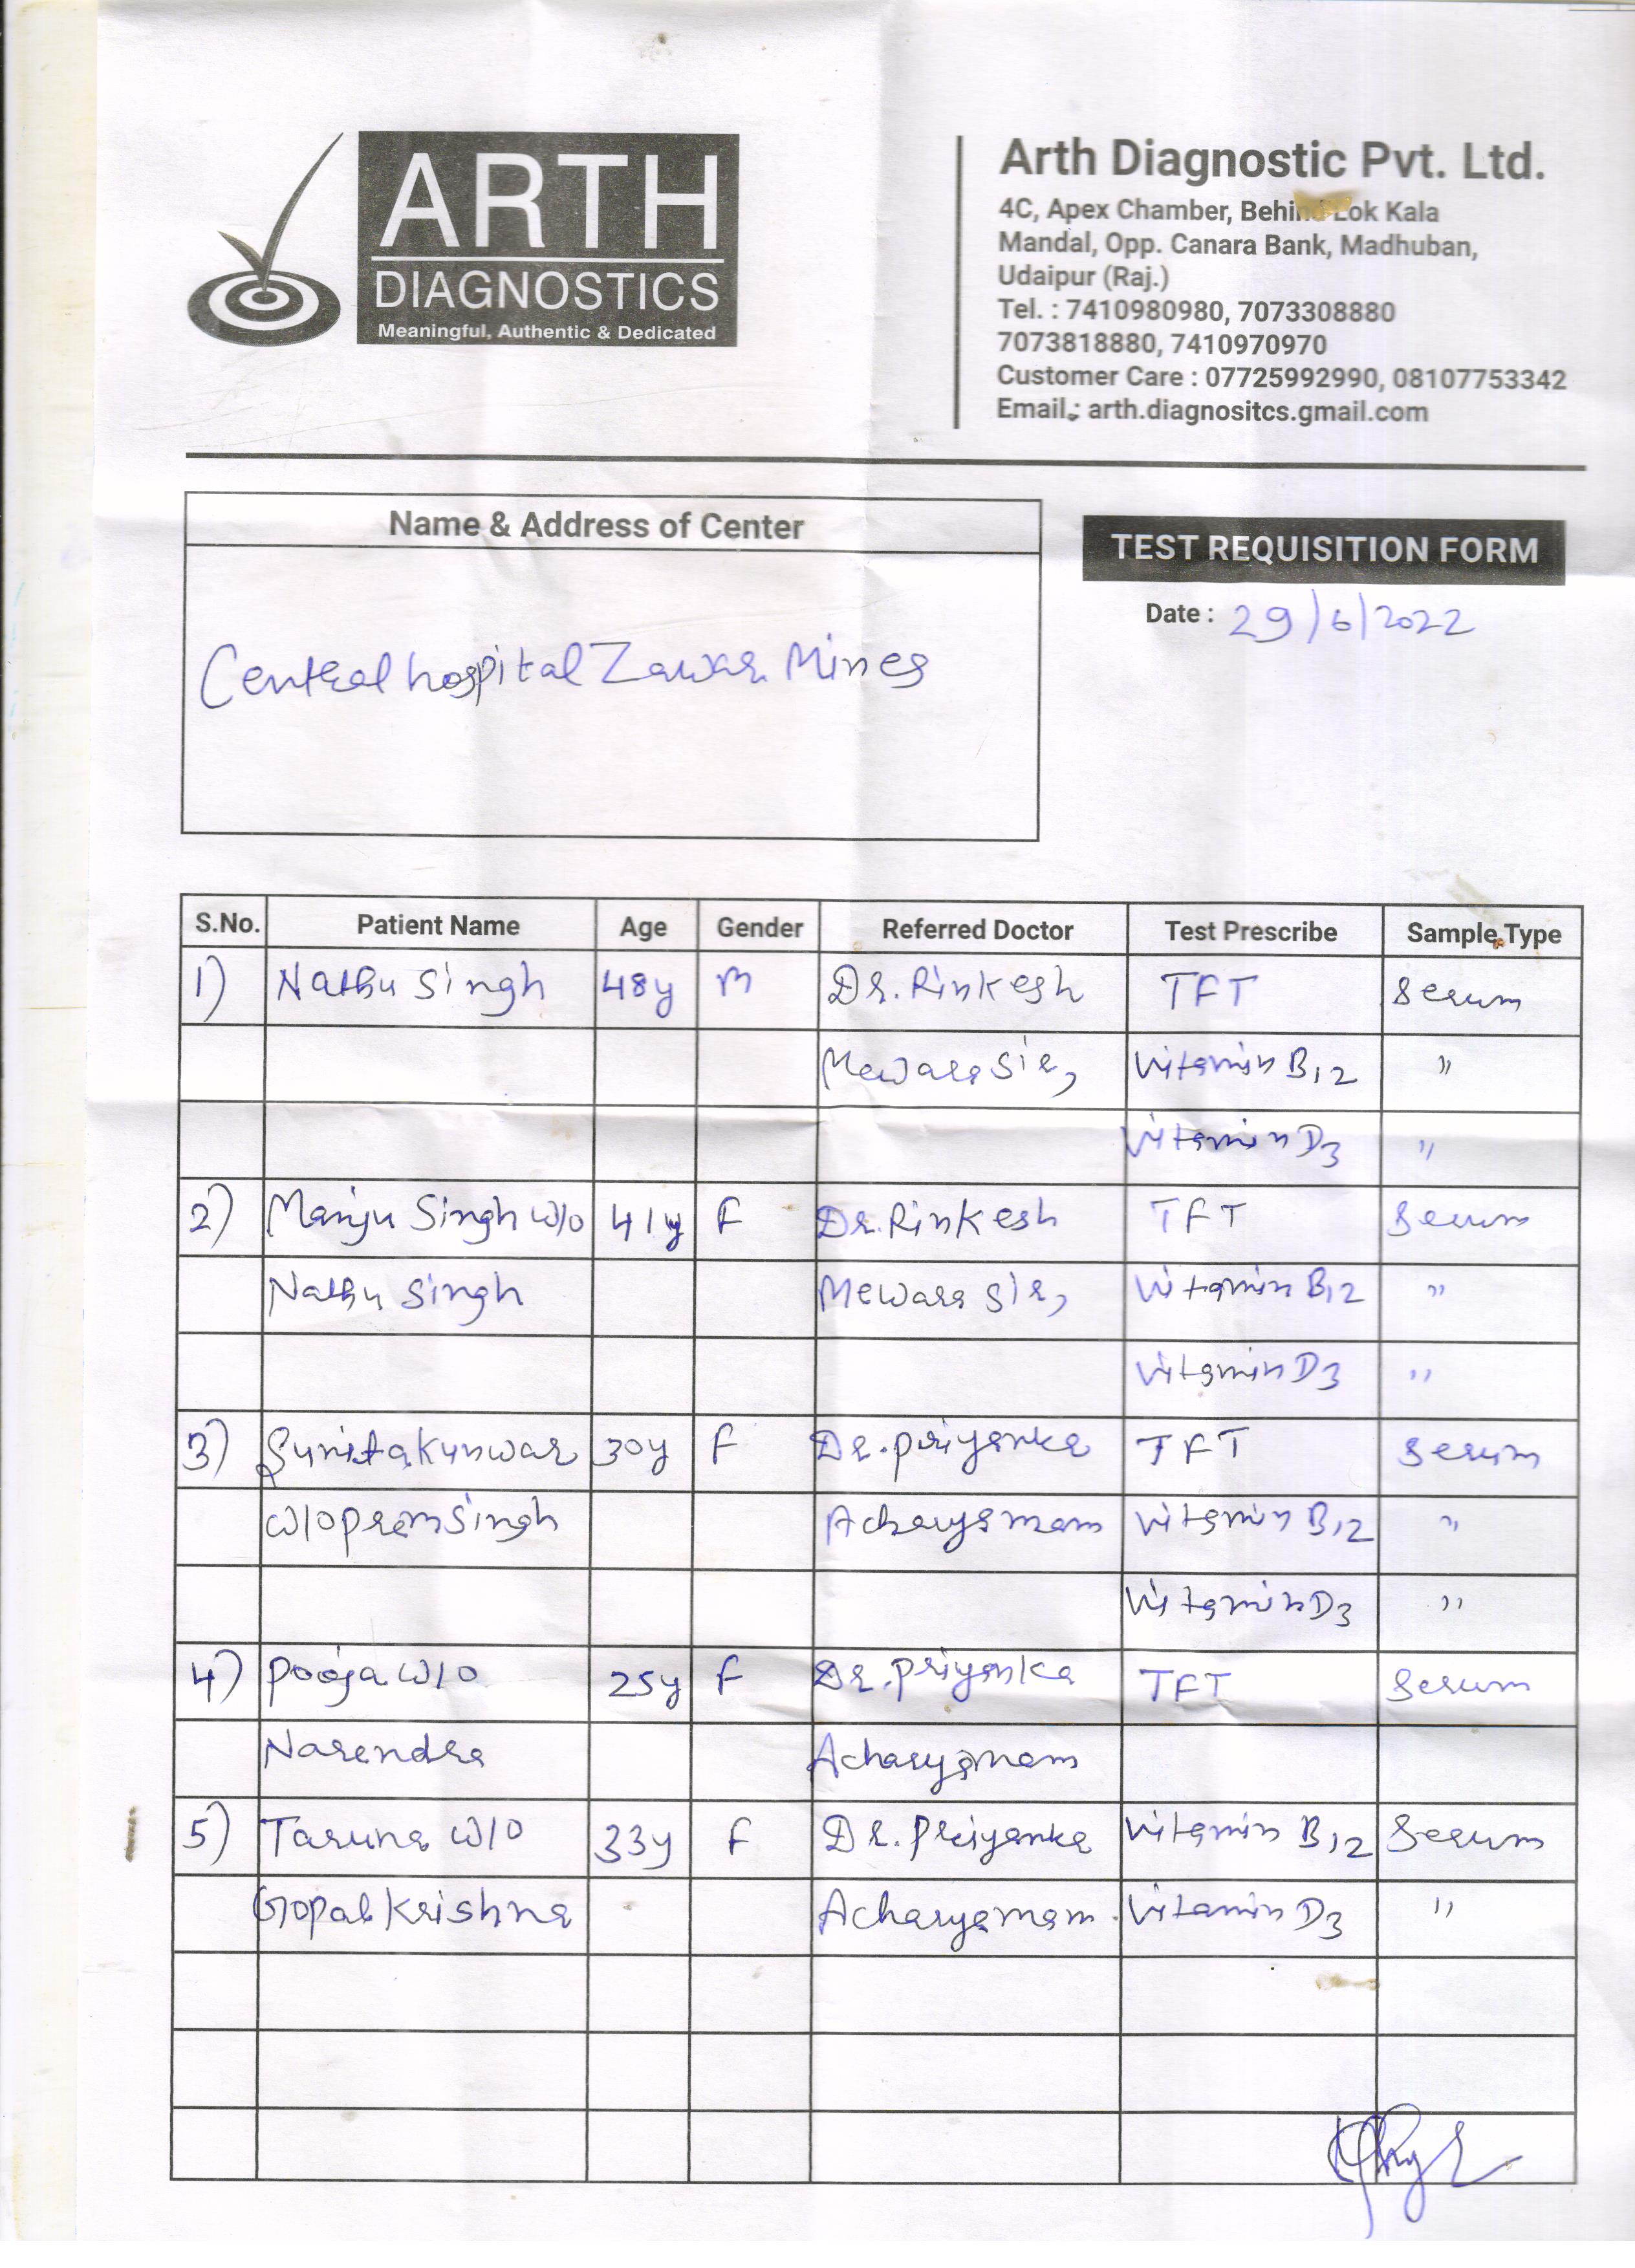 ARTH
DIAGNOSTICS
Meaningful, Authentic & Dedicated
Arth Diagnostic Pvt. Ltd.
4C, Apex Chamber, Behind Lok Kala
Mandal, Opp. Canara Bank, Madhuban,
Udaipur (Raj.)
Tel. : 7410980980, 7073308880
7073818880, 7410970970
Customer Care : 07725992990, 08107753342
Email : arth.diagnositcs.gmail.com
Name & Address of Center
TEST REQUISITION FORM
Date : 29/6/2022
Central hospital Zawar Mines
S.No. Patient Name Age Gender Referred Doctor Test Prescribe Sample Type
1) Nathu Singh 48y M Dr. Rinkesh TFT Serum
Mewara Sir, Vitamin B12 "
Vitamin D3 "
2) Manju Singh W/o 41y F Dr. Rinkesh TFT Serum
Nathu Singh Mewara Sir, Vitamin B12 "
Vitamin D3 "
3) Sunita Kunwar 30y F Dr. Priyanka TFT Serum
W/o Prem Singh Acharya mam Vitamin B12 "
Vitamin D3 "
4) Pooja W/o 25y F Dr. Priyanka TFT Serum
Narendra Acharya mam
5) Taruna W/o 33y F Dr. Priyanka Vitamin B12 Serum
Gopal Krishna Acharya mam Vitamin D3 "